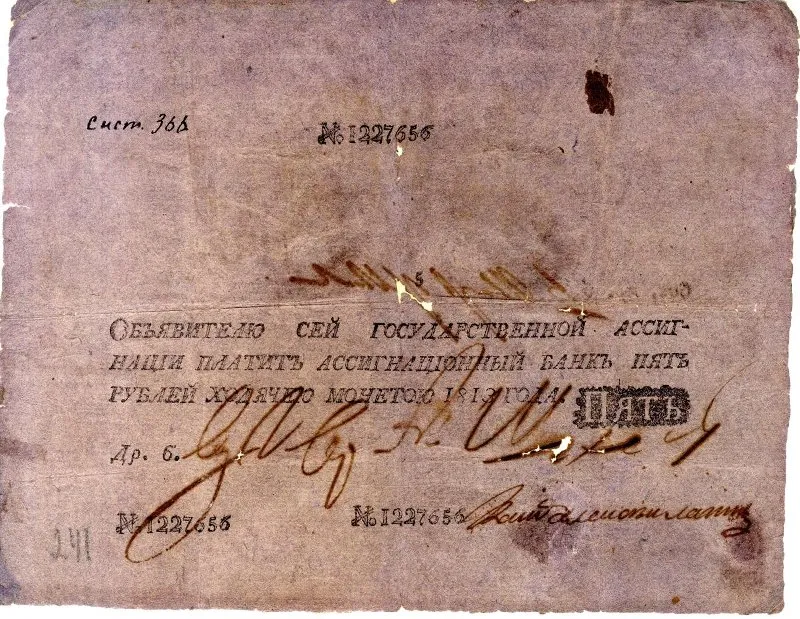 Сист. 36Б
№1227656
ОБЪЯВИТЕЛЮ СЕЙ ГОСУДАРСТВЕННОЙ АССИГ-
НАЦІИ ПЛАТИТЪ АССИГНАЦІОННЫЙ БАНКЪ ПЯТЬ
РУБЛЕЙ ХОДЯЧЕЮ МОНЕТОЮ 1813 ГОДА.
ПЯТЬ
Др. б.
№1227656 №1227656
241